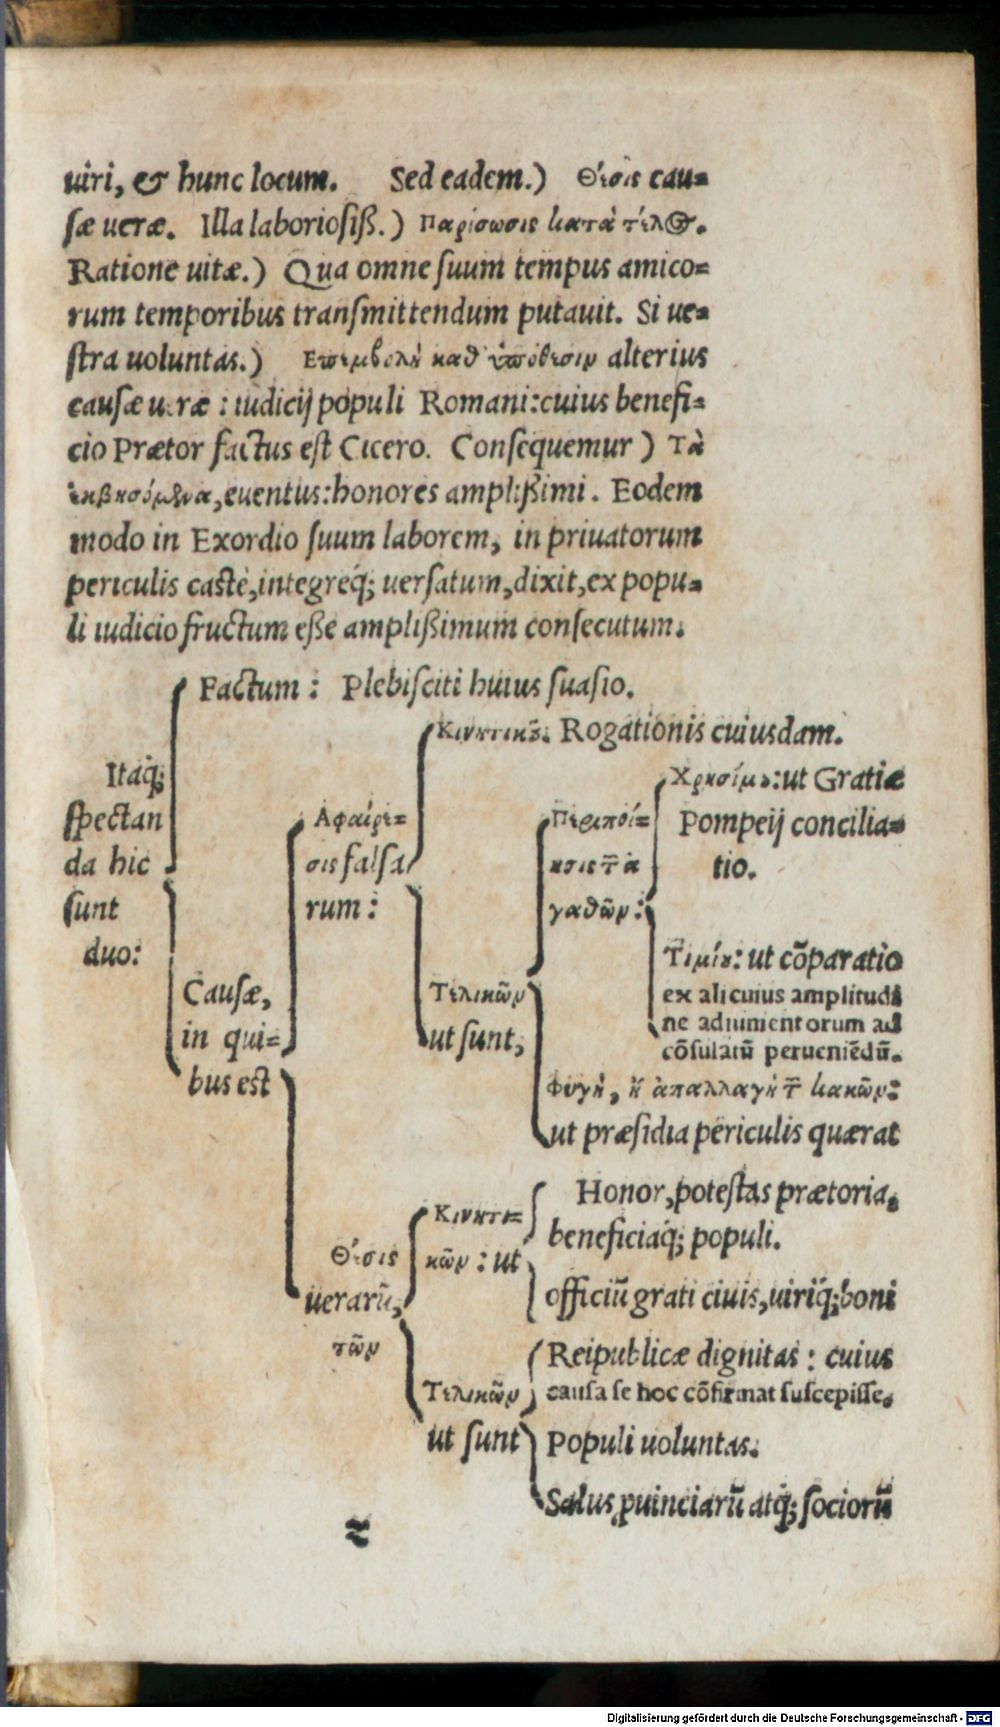 uiri, & hunc locum. Sed eadem.) Θέσις cau=
ſæ ueræ. Illa laborioſiß.) Παρίσωσις κατὰ τέλος.
Ratione uitæ.) Qua omne ſuum tempus amico=
rum temporibus tranſmittendum putauit. Si ue=
ſtra uoluntas.) Επεμβολὴ καθ' ὑπόθεσιν alterius
cauſæ ueræ : iudicij populi Romani: cuius benefi=
cio Prætor factus eſt Cicero. Conſequemur ) Τὰ
ἐκβησόμενα, euentus: honores ampliſſimi. Eodem
modo in Exordio ſuum laborem, in priuatorum
periculis caſtè, integreq́; uerſatum, dixit, ex popu=
li iudicio fructum eſſe ampliſſimum conſecutum.
Factum : Plebiſciti huius ſuaſio.
Itaq́;
ſpectan
da hic
ſunt
duo:
Cauſæ,
in qui=
bus eſt
Αφαίρε=
σις falſa
rum :
Κινητικῶν. Rogationis cuiusdam.
Τελικῶν
ut ſunt,
Περιποί=
ησις τ̃ ἀ
γαθῶν :
Χρησίμου: ut Gratiæ
Pompeij concilia=
tio.
Τιμίου: ut cõparatio
ex alicuius amplitudi
ne adiumentorum ad
cõſulatũ perueniẽdũ.
Φυγὴ, ἢ ἀπαλλαγὴ τ̃ κακῶν :
ut præſidia periculis quærat
Θέσις
uerarũ,
τῶν
Κινητι=
κῶν : ut
Honor, poteſtas prætoria,
beneficiaq́; populi.
officiũ grati ciuis, uiriq́; boni
Τελικῶν
ut ſunt
Reipublicæ dignitas : cuius
cauſa ſe hoc cõfirmat ſuſcepiſſe.
Populi uoluntas.
Salus ꝓuinciarũ atq́; ſociorũ
Digitalisierung gefördert durch die Deutsche Forschungsgemeinschaft - DFG